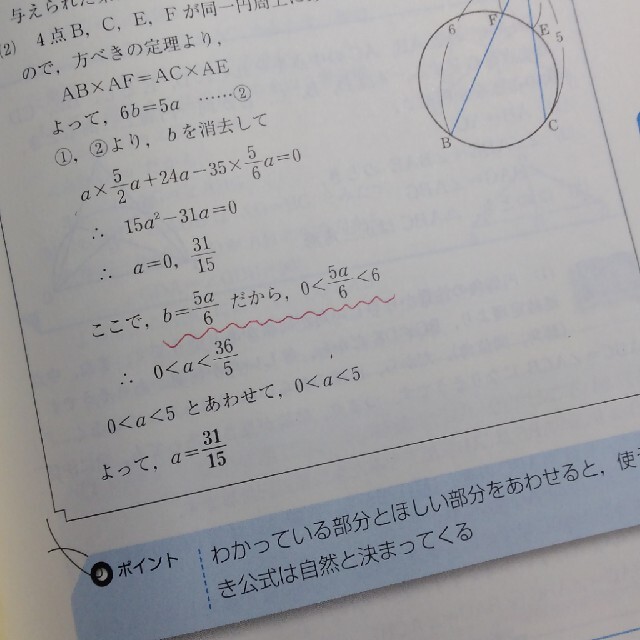 与えられた
(2) 4点B，C，E，Fが同一円周上に
ので，方べきの定理より，
AB×AF=AC×AE
よって，6b=5a ……②
①，②より，bを消去して
a×5/2a+24a−35×5/6a=0
∴ 15a²−31a=0
∴ a=0，31/15
ここで，b=5a/6 だから，0<5a/6<6
∴ 0<a<36/5
0<a<5 とあわせて，0<a<5
よって，a=31/15
6
F
E
5
B
C
ポイント
わかっている部分とほしい部分をあわせると，使
き公式は自然と決まってくる